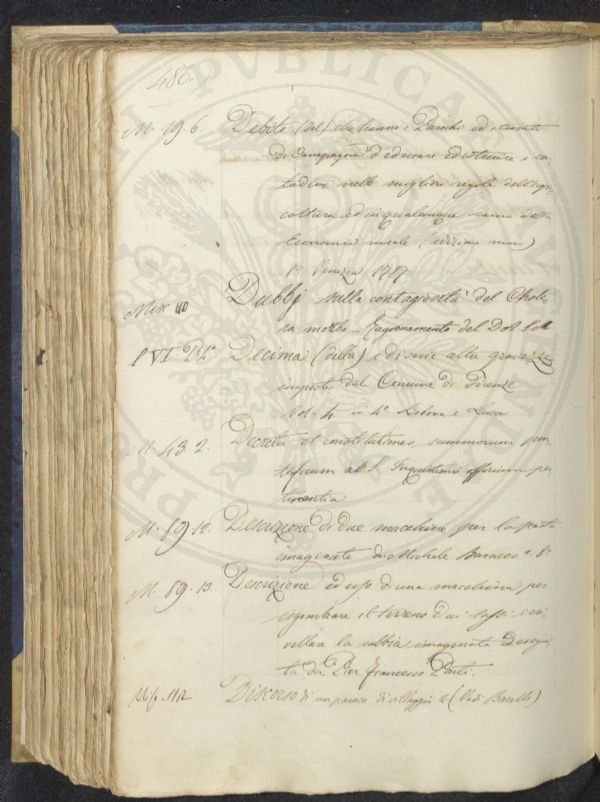 486.
M. 19. 6. Debito (del) che hanno i Parochi ed i Curati
di Campagna d'educare ed istruire i con-
tadini nelle migliori regole dell'agri
coltura ed in qualunque ramo dell'
Economia rurale (edizione num)
Venezia 1787
Misc 40 Dubbj sulla contagiosità del Chole-
ra morbo - Ragionamento del Dott
I VI Decima (della) e di varie altre gravezze
imposte dal Comune di Firenze
vol. 4 in 4° Lisbona e Lucca
M. 43 2. Decreta et constitutiones summorum pon
tificum ad S. Inquisitionis officium per
tinentia
M. 89. 12. Descrizione di due macchine per la pasta
imaginate da Michele Baracco 8°
M. 89. 13. Descrizione ed uso di una macchina per
isgombrare il terreno dai sassi e cri-
vellare la sabbia imaginata ed esegui
ta da Pier Francesco Conti.
Misc. 112 Discorso di un paroco di villaggio (Vedi Barelli)
PUBLICA